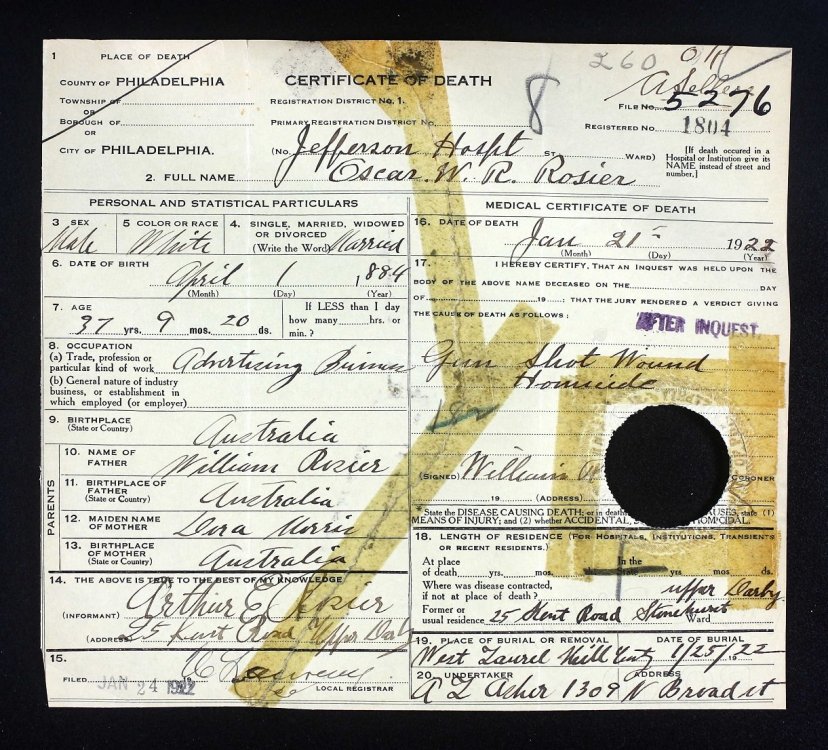 260 OK
1 PLACE OF DEATH
COUNTY OF PHILADELPHIA
CERTIFICATE OF DEATH
8
TOWNSHIP OF
OR
BOROUGH OF
OR
CITY OF PHILADELPHIA.
REGISTRATION DISTRICT NO. 1.
FILE NO. 5276
PRIMARY REGISTRATION DISTRICT NO.
REGISTERED NO. 1804
(No. Jefferson Hospt ST. WARD)
[If death occured in a Hospital or Institution give its NAME instead of street and number.]
2. FULL NAME Oscar W. R. Rosier
PERSONAL AND STATISTICAL PARTICULARS
3 SEX Male
5 COLOR OR RACE White
4. SINGLE, MARRIED, WIDOWED OR DIVORCED (Write the Word) Married
6. DATE OF BIRTH April 1, 1884
(Month) (Day) (Year)
7. AGE 37 yrs. 9 mos. 20 ds.
If LESS than 1 day how many hrs. or min.?
8. OCCUPATION
(a) Trade, profession or particular kind of work Advertising Business
(b) General nature of industry business, or establishment in which employed (or employer)
9. BIRTHPLACE (State or Country) Australia
PARENTS
10. NAME OF FATHER William Rosier
11. BIRTHPLACE OF FATHER (State or Country) Australia
12. MAIDEN NAME OF MOTHER Dora Morris
13. BIRTHPLACE OF MOTHER (State or Country) Australia
14. THE ABOVE IS TRUE TO THE BEST OF MY KNOWLEDGE
(INFORMANT) Arthur E. Rosier
(ADDRESS) 25 Kent Road Upper Darby
15.
FILED JAN 24 1922
LOCAL REGISTRAR
MEDICAL CERTIFICATE OF DEATH
16. DATE OF DEATH Jan 21 1922
(Month) (Day) (Year)
17. I HEREBY CERTIFY, THAT AN INQUEST WAS HELD UPON THE
BODY OF THE ABOVE NAME DECEASED ON THE DAY
OF 19 : THAT THE JURY RENDERED A VERDICT GIVING
THE CAUSE OF DEATH AS FOLLOWS:
AFTER INQUEST
Gun Shot Wound
Homicide
(SIGNED) William CORONER
19 (ADDRESS)
State the DISEASE CAUSING DEATH; or in deaths CAUSES, state (1)
MEANS OF INJURY; and (2) whether ACCIDENTAL, HOMICIDAL.
18. LENGTH OF RESIDENCE (FOR HOSPITALS, INSTITUTIONS, TRANSIENTS OR RECENT RESIDENTS.)
At place of death yrs. mos. ds.
In the State yrs mos. ds.
Where was disease contracted, if not at place of death? Upper Darby
Former or usual residence 25 Kent Road Stonehurst Ward
19. PLACE OF BURIAL OR REMOVAL West Laurel Hill Cmty
DATE OF BURIAL 1/25/1922
20. UNDERTAKER ADDRESS
1309 N Broad st